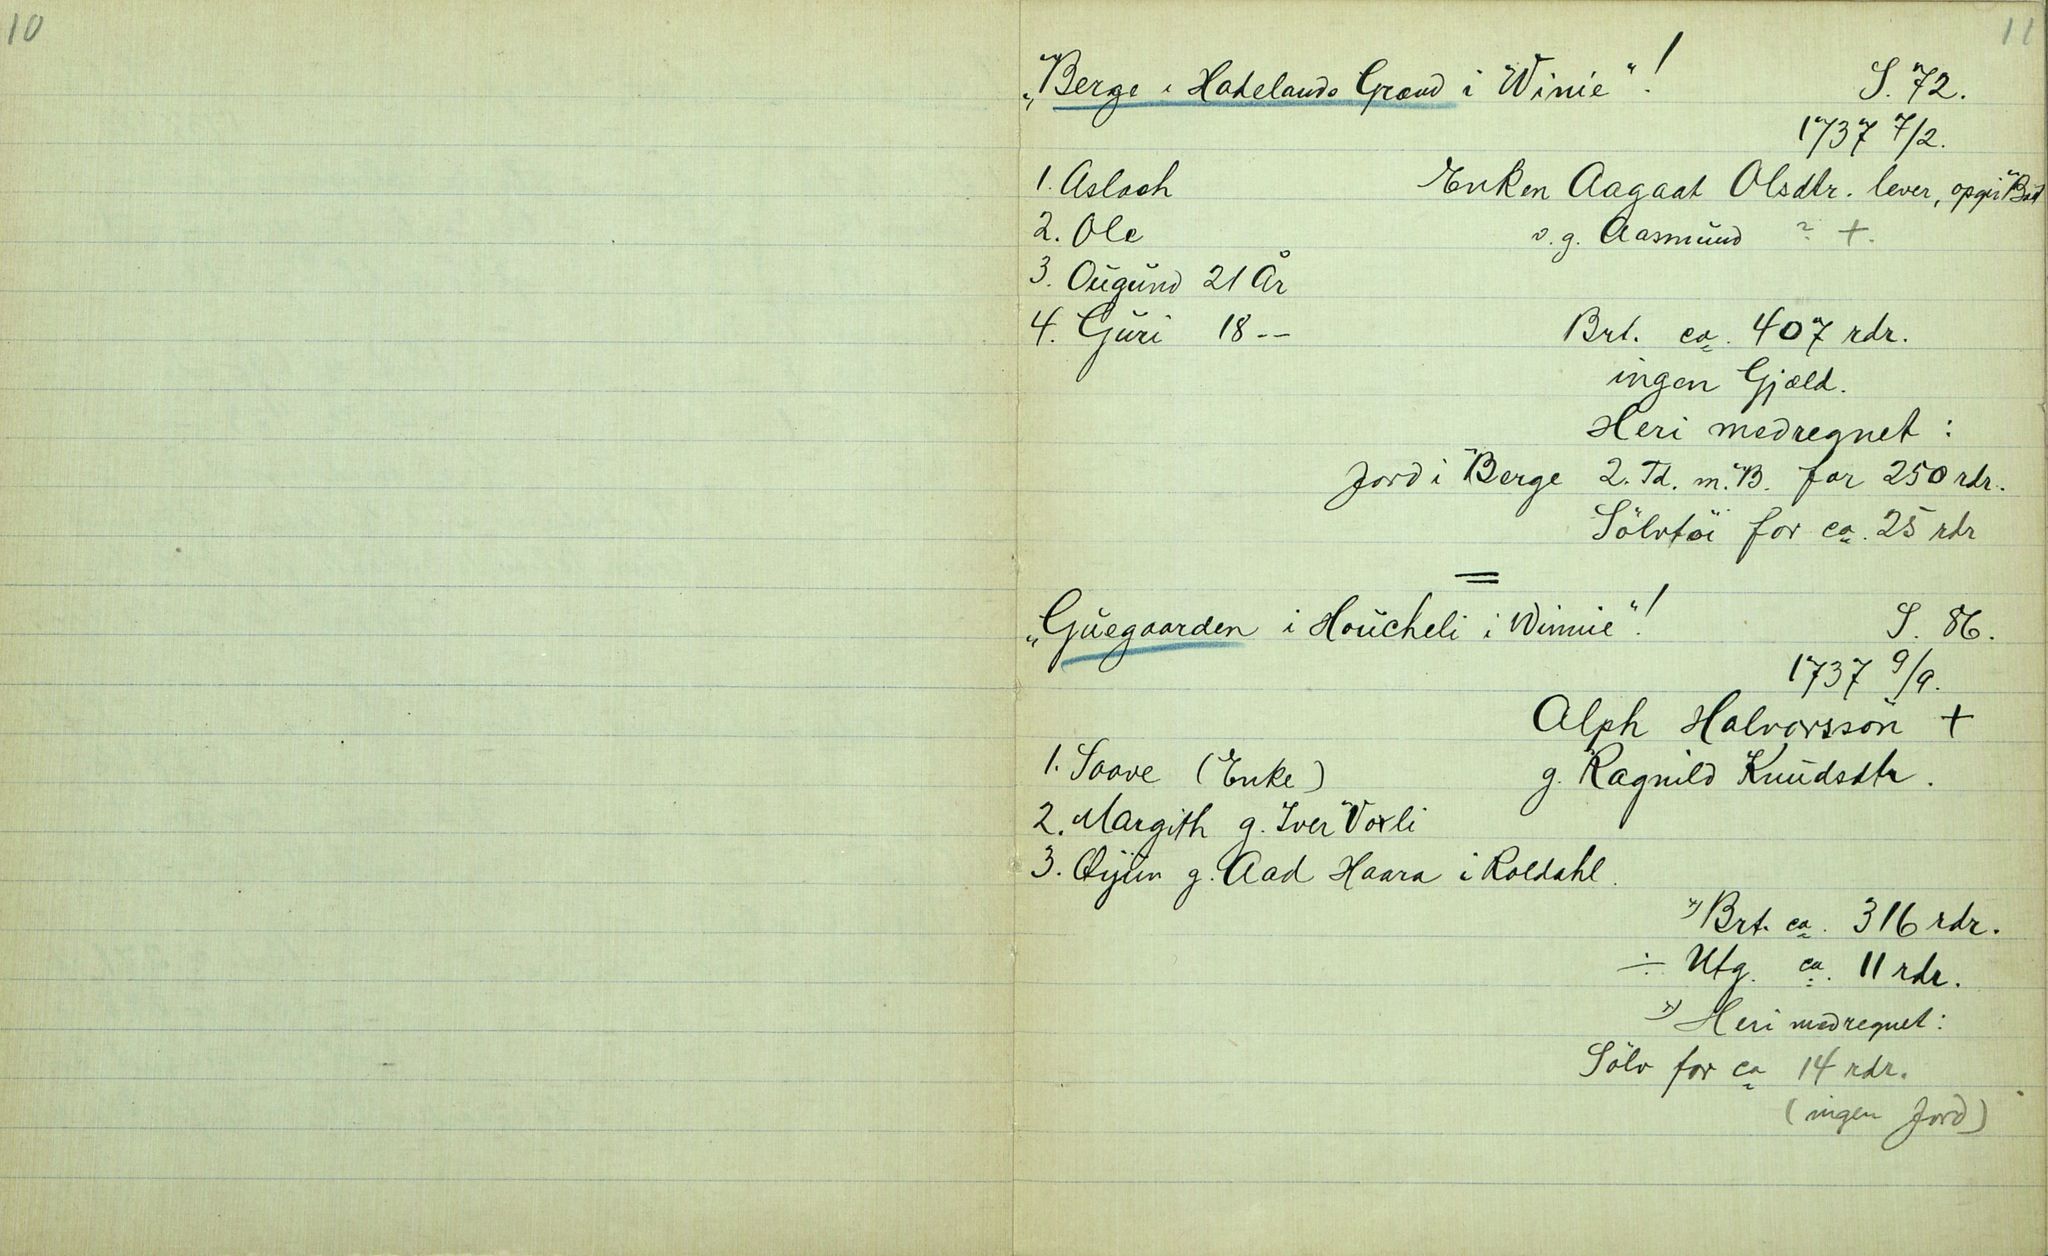 10
11
„Berge i Hatelands Grænd i Winie“! S. 72.
1737 7/2.
1. Asloch Enken Aagaat Olsdtr. lever,
2. Ole v. g. Aasmund ? +.
3. Ougund 21 År
4. Guri 18 --
Brt. ca. 407 rdr.
ingen Gjæld.
Heri medregnet:
Jord i Berge 2. Td. m. B. for 250 rdr.
Sölvtöi for ca. 25 rdr
„Guegaarden i Houcheli i Winnie“! S. 86.
1737 9/9.
Alph Halvorsson +
1. Saave (Enke) g. Ragnild Knudsdtr.
2. Margith g. Iver Voxli
3. g. Aad Haara i Roldahl.
x) Brt. ca. 316 rdr.
÷ Utg. ca. 11 rdr.
x) Heri medregnet:
Sölv for ca 14 rdr.
(ingen Jord)